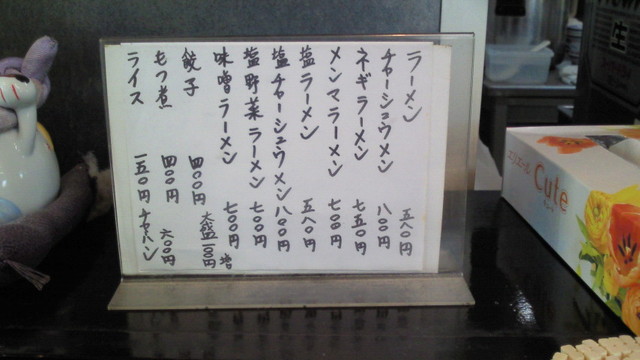 ラーメン 五八〇円
チャーシュウメン 八〇〇円
ネギラーメン 七五〇円
メンマラーメン 七〇〇円
塩ラーメン 五八〇円
塩チャーシュウメン 八〇〇円
塩野菜ラーメン 七〇〇円
味噌ラーメン 七〇〇円
大盛二〇〇円増
餃子 四〇〇円
もつ煮 四〇〇円
ライス 一五〇円
チャーハン 六〇〇円
生
エリエール
Cute